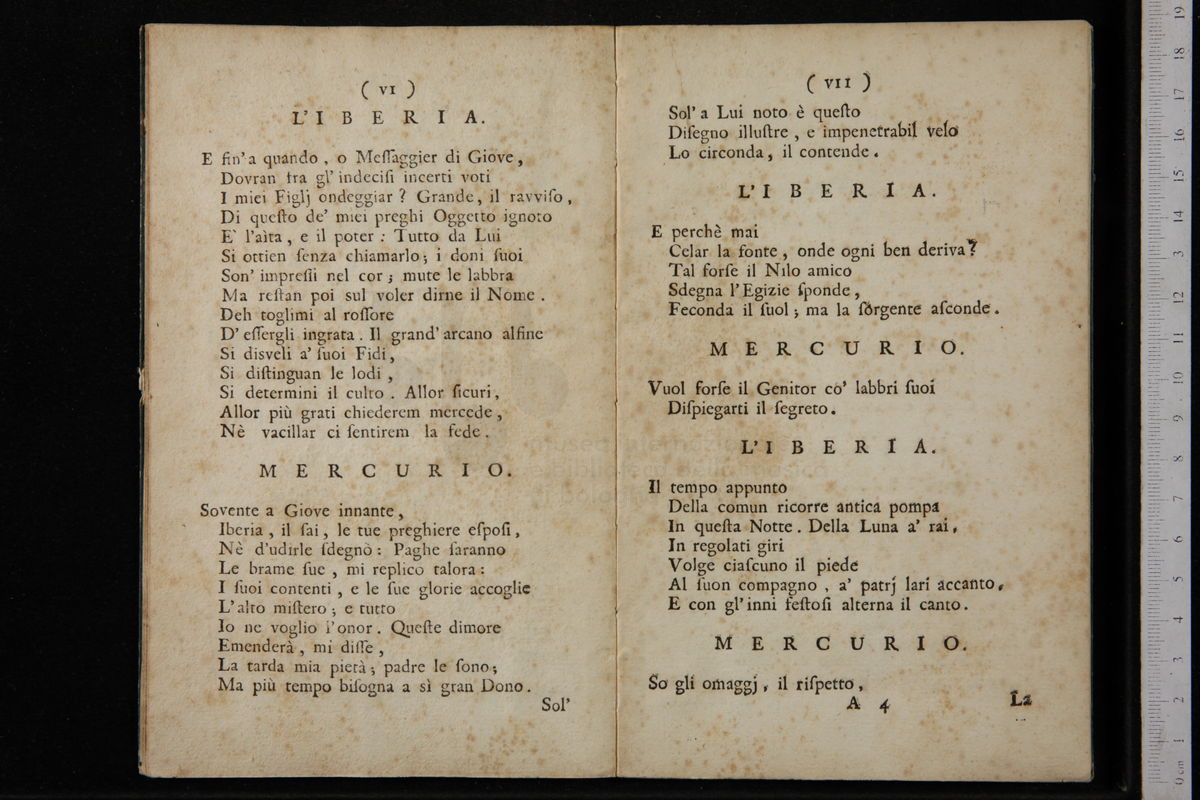 ( VI )
L'IBERIA.
E fin'a quando, o Meſſaggier di Giove,
Dovran tra gl' indeciſi incerti voti
I miei Figlj ondeggiar? Grande, il ravviſo,
Di queſto de' miei preghi Oggetto ignoto
E` l'aita, e il poter: Tutto da Lui
Si ottien ſenza chiamarlo; i doni ſuoi
Son' impreſſi nel cor; mute le labbra
Ma reſtan poi sul voler dirne il Nome.
Deh toglimi al roſſore
D' eſſergli ingrata. Il grand' arcano alfine
Si disveli a' ſuoi Fidi,
Si diſtinguan le lodi,
Si determini il culto. Allor ſicuri,
Allor più grati chiederem mercede,
Nè vacillar ci ſentirem la fede.
MERCURIO.
Sovente a Giove innante,
Iberia, il ſai, le tue preghiere eſpoſi,
Nè d'udirle ſdegnò: Paghe ſaranno
Le brame ſue, mi replicò talora:
I ſuoi contenti, e le ſue glorie accoglie
L'alto miſtero; e tutto
Io ne voglio l'onor. Queſte dimore
Emenderà, mi diſſe,
La tarda mia pietà; padre le ſono;
Ma più tempo biſogna a sì gran Dono.
Sol'
( VII )
Sol' a Lui noto è queſto
Diſegno illuſtre, e impenetrabil velo
Lo circonda, il contende.
L'IBERIA.
E perchè mai
Celar la fonte, onde ogni ben deriva?
Tal forſe il Nilo amico
Sdegna l'Egizie ſponde,
Feconda il ſuol; ma la ſorgente aſconde.
MERCURIO.
Vuol forſe il Genitor co' labbri ſuoi
Diſpiegarti il ſegreto.
L'IBERIA.
Il tempo appunto
Della comun ricorre antica pompa
In queſta Notte. Della Luna a' rai,
In regolati giri
Volge ciaſcuno il piede
Al ſuon compagno, a' patrj lari accanto,
E con gl'inni feſtoſi alterna il canto.
MERCURIO.
So gli omaggj, il riſpetto,
A 4
La